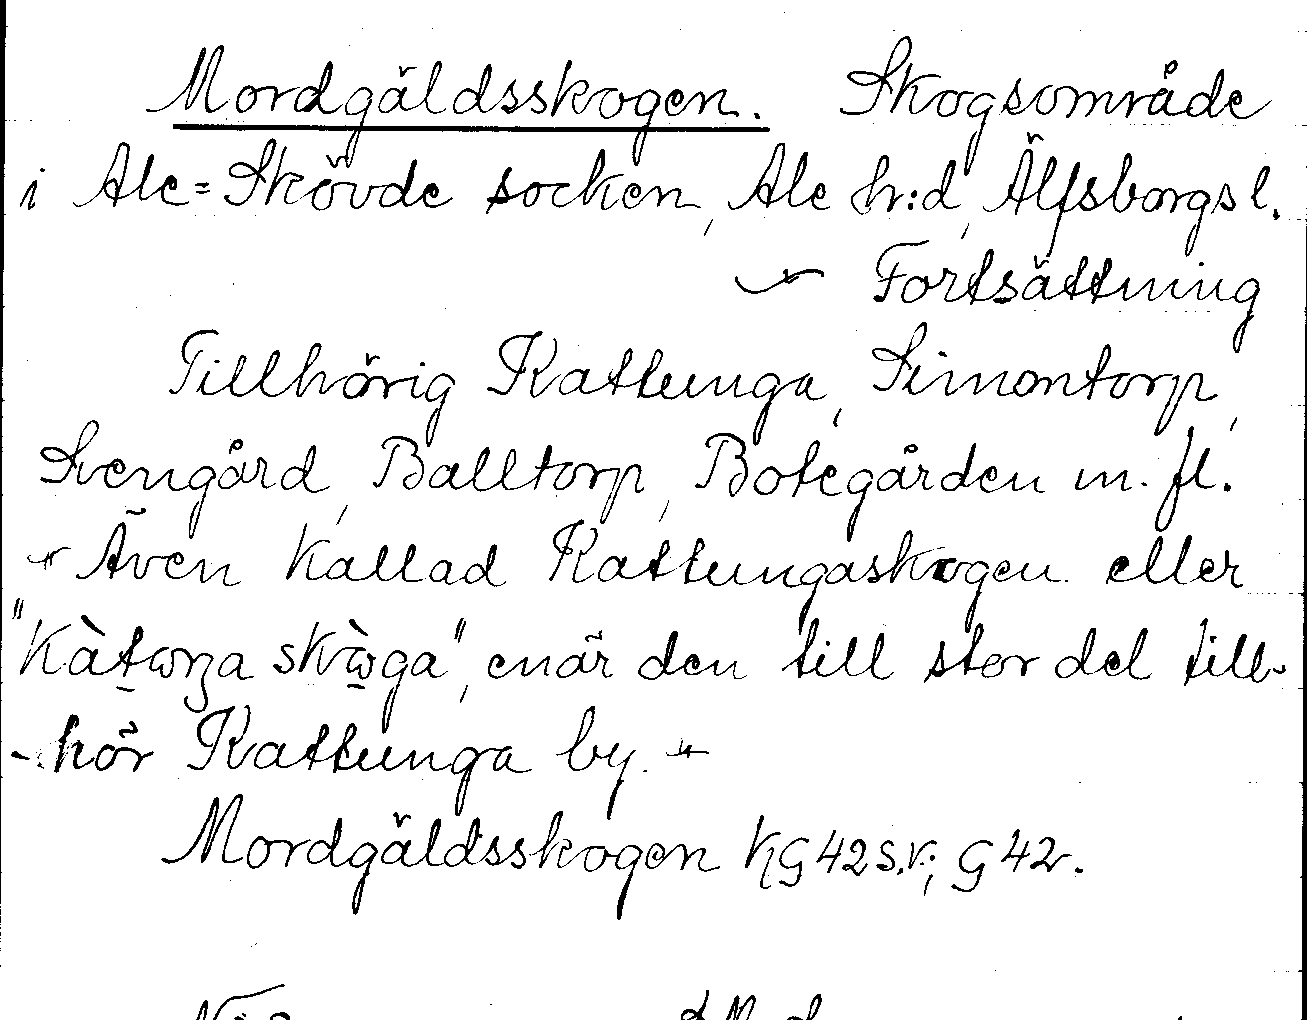 Mordgäldsskogen. Skogsområde
i Ale=Skövde socken, Ale h:d, Älfsborgs l.
Fortsättning
Tillhörig Kattunga, Simontorp,
Svengård, Balltorp, Botegården m. fl.
Även kallad Kattungaskogen eller
enär den till stor del till-
-hör Kattunga by.
Mordgäldsskogen KG42S.V; G42.